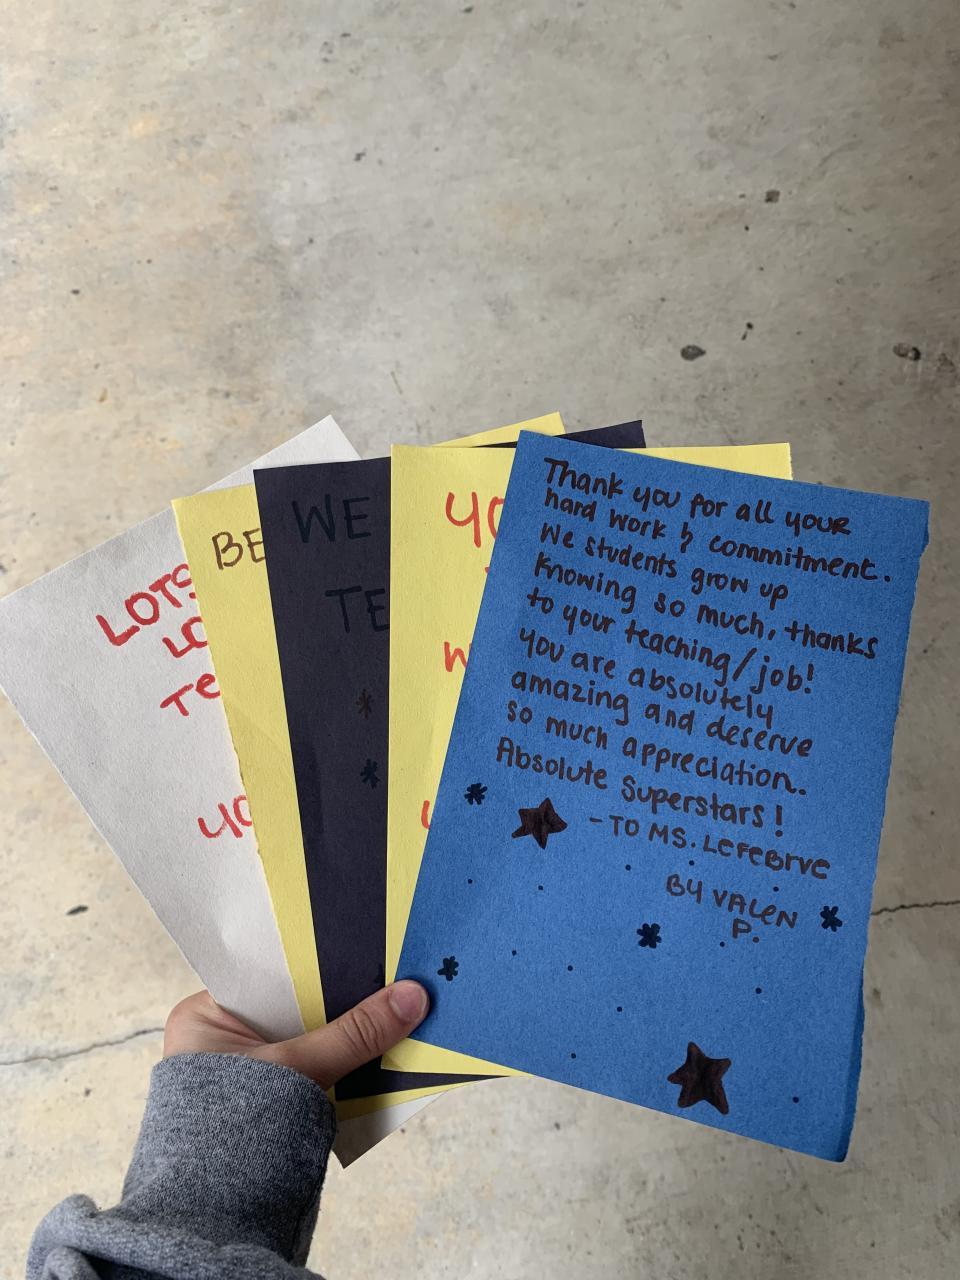 LOTS
LO
TE
YO
BE
WE
TE
YO
W
Thank you for all your
hard work & commitment.
We students grow up
knowing so much, thanks
to your teaching/job!
you are absolutely
amazing and deserve
so much appreciation.
Absolute Superstars!
- TO MS. LEFEBRVE
BY VALEN
P.